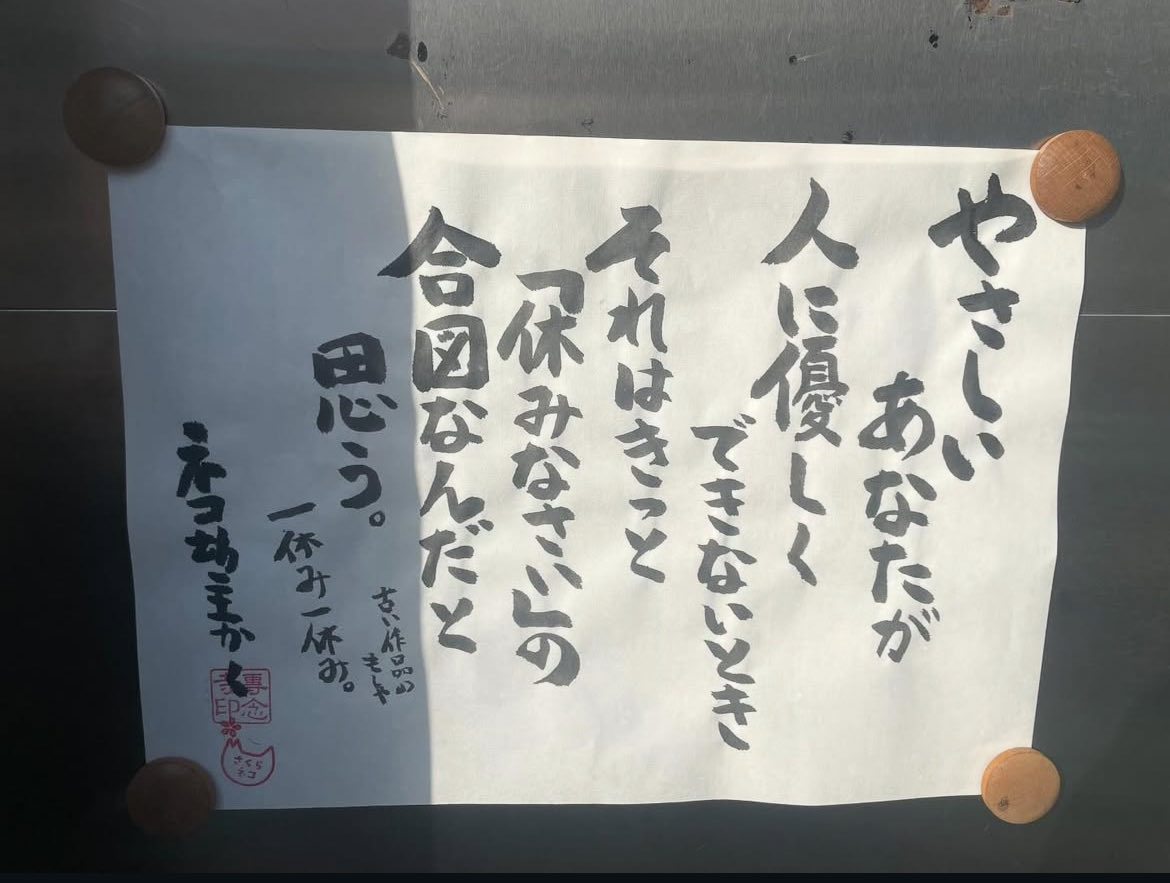 やさしい
あなたが
人に優しく
できないとき
それはきっと
「休みなさい」の
合図なんだと
思う。
古い作品の
もしゃ
一休み一休み。
ネコ坊主かく
專念
寺印
さくら
ネコ